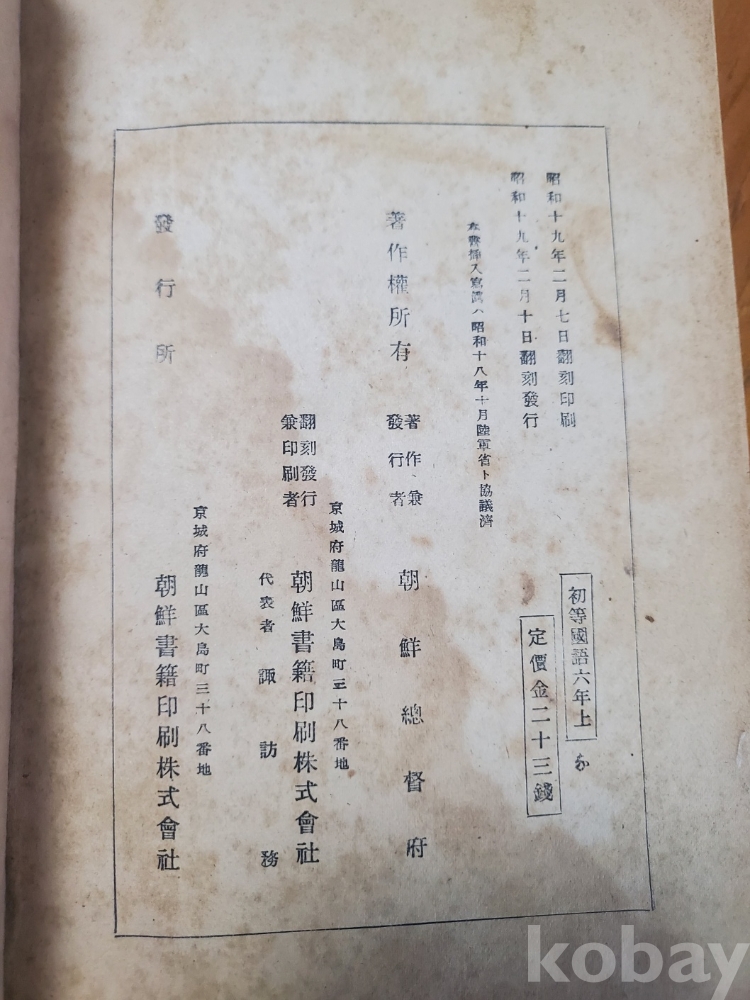 昭和十九年二月七日翻刻印刷
昭和十九年二月十日翻刻發行
本書挿入寫眞ハ昭和十八年十月陸軍省ト協議濟
初等國語六年上
定價金二十三錢
著作權所有
著作兼
發行者
朝鮮總督府
京城府龍山區大島町三十八番地
翻刻發行
兼印刷者
朝鮮書籍印刷株式會社
代表者 諏訪務
京城府龍山區大島町三十八番地
發行所
朝鮮書籍印刷株式會社
kobay